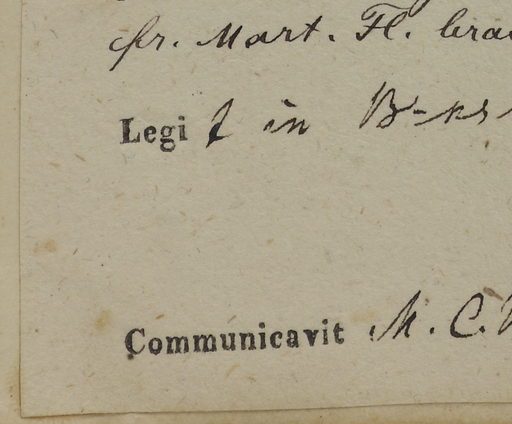 cfr. Mart. Fl. bra
Legi f in B-ks
Communicavit M. C.